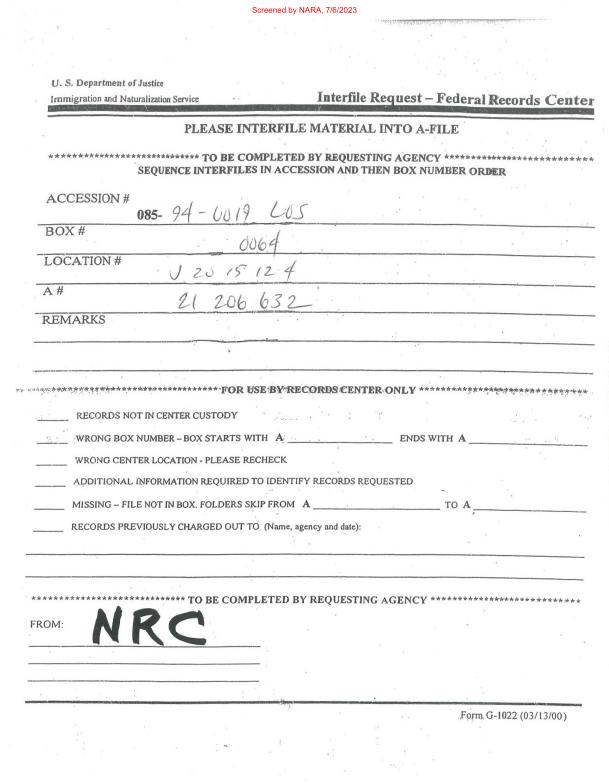 Screened by NARA, 7/6/2023
U. S. Department of Justice
Immigration and Naturalization Service
Interfile Request – Federal Records Center
PLEASE INTERFILE MATERIAL INTO A-FILE
**************************** TO BE COMPLETED BY REQUESTING AGENCY ****************************
SEQUENCE INTERFILES IN ACCESSION AND THEN BOX NUMBER ORDER
ACCESSION #
085- 94-0019 LOS
BOX #
0064
LOCATION #
J 20 15 12 4
A #
21 206 632
REMARKS
************************************FOR USE BY RECORDS CENTER ONLY ******************************
_____ RECORDS NOT IN CENTER CUSTODY
_____ WRONG BOX NUMBER – BOX STARTS WITH A _________________ ENDS WITH A _________________
_____ WRONG CENTER LOCATION - PLEASE RECHECK
_____ ADDITIONAL INFORMATION REQUIRED TO IDENTIFY RECORDS REQUESTED
_____ MISSING – FILE NOT IN BOX. FOLDERS SKIP FROM A _________________ TO A _________________
_____ RECORDS PREVIOUSLY CHARGED OUT TO (Name, agency and date):
**************************** TO BE COMPLETED BY REQUESTING AGENCY ****************************
FROM: NRC
Form G-1022 (03/13/00)